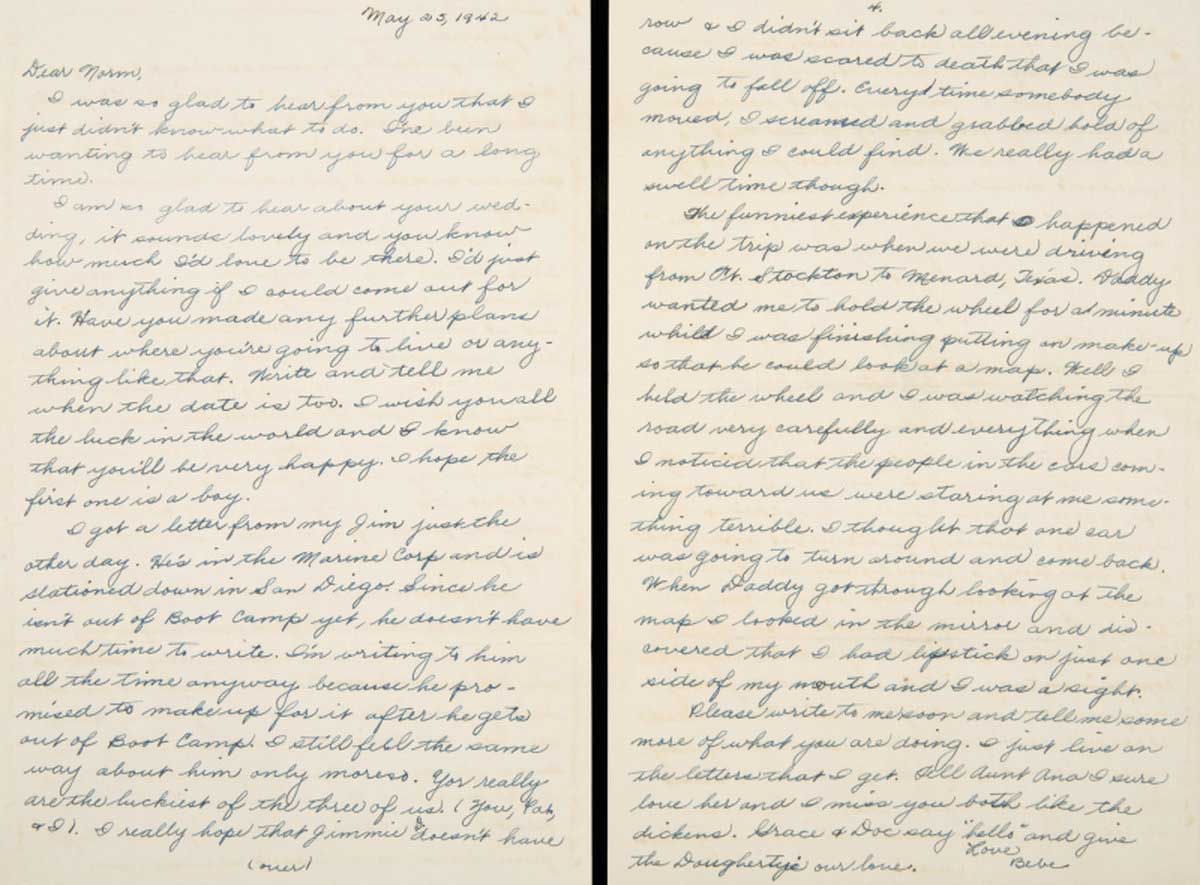 May 25, 1942
Dear Norm,
I was so glad to hear from you that I
just didn't know what to do. I've been
wanting to hear from you for a long
time.
I am so glad to hear about your wed-
ding, it sounds lovely and you know
how much I'd love to be there. I'd just
give anything if I could come out for
it. Have you made any further plans
about where you're going to live or any-
thing like that. Write and tell me
when the date is too. I wish you all
the luck in the world and I know
that you'll be very happy. I hope the
first one is a boy.
I got a letter from my Jim just the
other day. He's in the Marine Corp and is
stationed down in San Diego. Since he
isn't out of Boot Camp yet, he doesn't have
much time to write. I'm writing to him
all the time anyway because he pro-
mised to make up for it after he gets
out of Boot Camp. I still feel the same
way about him only moreso. Yor really
are the luckiest of the three of us. (You, Pat,
& I). I really hope that Jimmie doesn't have
(over)
4.
row & I didn't sit back all evening be-
cause I was scared to death that I was
going to fall off. Every time somebody
moved, I screamed and grabbed hold of
anything I could find. We really had a
swell time though.
The funniest experience that happened
on the trip was when we were driving
from Ft. Stockton to Menard, Texas. Daddy
wanted me to hold the wheel for a minute
while I was finishing putting on make-up
so that he could look at a map. Well I
held the wheel and I was watching the
road very carefully and everything when
I noticed that the people in the cars com-
ing toward us were staring at me some-
thing terrible. I thought that one car
was going to turn around and come back.
When Daddy got through looking at the
map I looked in the mirror and dis-
covered that I had lipstick on just one
side of my mouth and I was a sight.
Please write to me soon and tell me some
more of what you are doing. I just live on
the letters that I get. Tell Aunt Ana I sure
love her and I miss you both like the
dickens. Grace & Doc say "hello" and give
the Dougherty's our love.
Love
Bebe